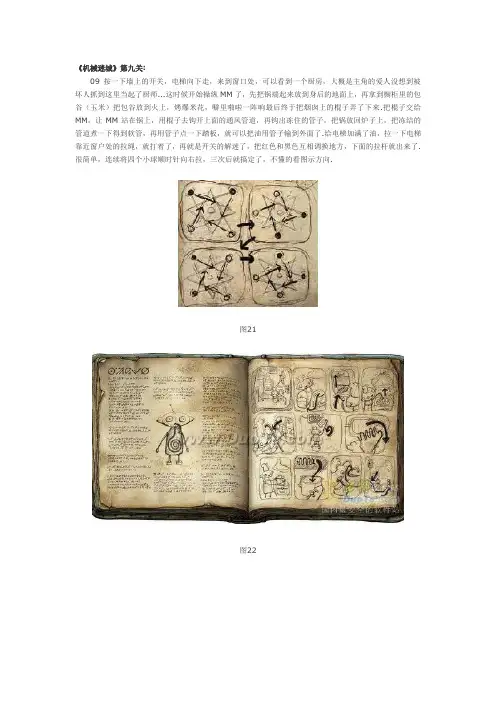 《机械迷城》第九关:
09 按一下墙上的开关，电梯向下走，来到窗口处，可以看到一个厨房，大概是主角的爱人没想到被
坏人抓到这里当起了厨师...这时候开始操纵 MM 了，先把锅端起来放到身后的地面上，再拿到橱柜里的包
谷（玉米）把包谷放到火上，烤爆米花，噼里啪啦一阵响最后终于把烟囱上的棍子弄了下来.把棍子交给
MM，让 MM 站在锅上，用棍子去钩开上面的通风管道，再钩出冻住的管子，把锅放回炉子上，把冻结的
管道煮一下得到软管，再用管子点一下踏板，就可以把油用管子输到外面了.给电梯加满了油，拉一下电梯
靠近窗户处的拉绳，就打着了，再就是开关的解迷了，把红色和黑色互相调换地方，下面的拉杆就出来了.
很简单，连续将四个小球顺时针向右拉，三次后就搞定了，不懂的看图示方向.
图21
图22